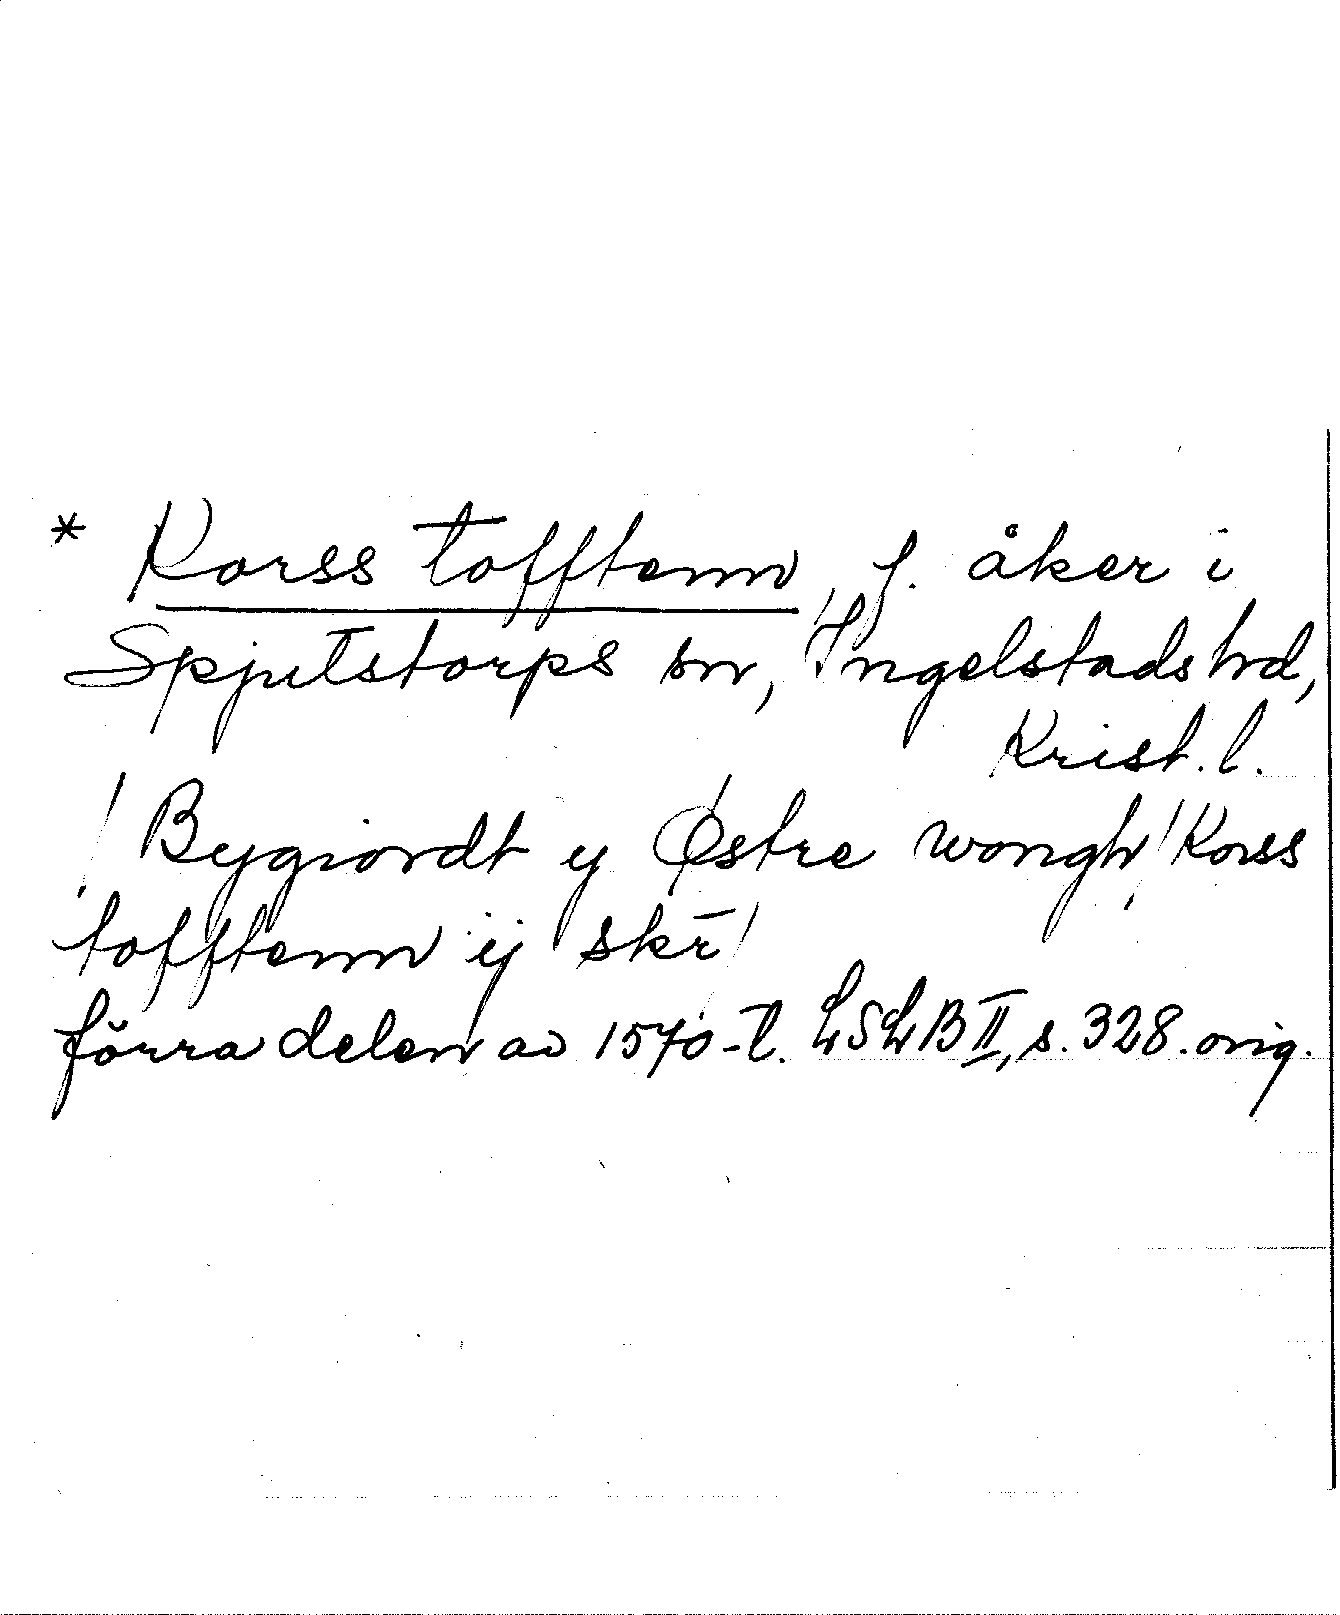 * Korss tofftenn, f. åker i
Spjutstorps sn, Ingelstads hd,
Krist. l.
/ Bygiordt y Østre wongh / Korss
tofftenn ij skr̄ /
förra delen av 1570-t. LSLB II, s. 328. orig.